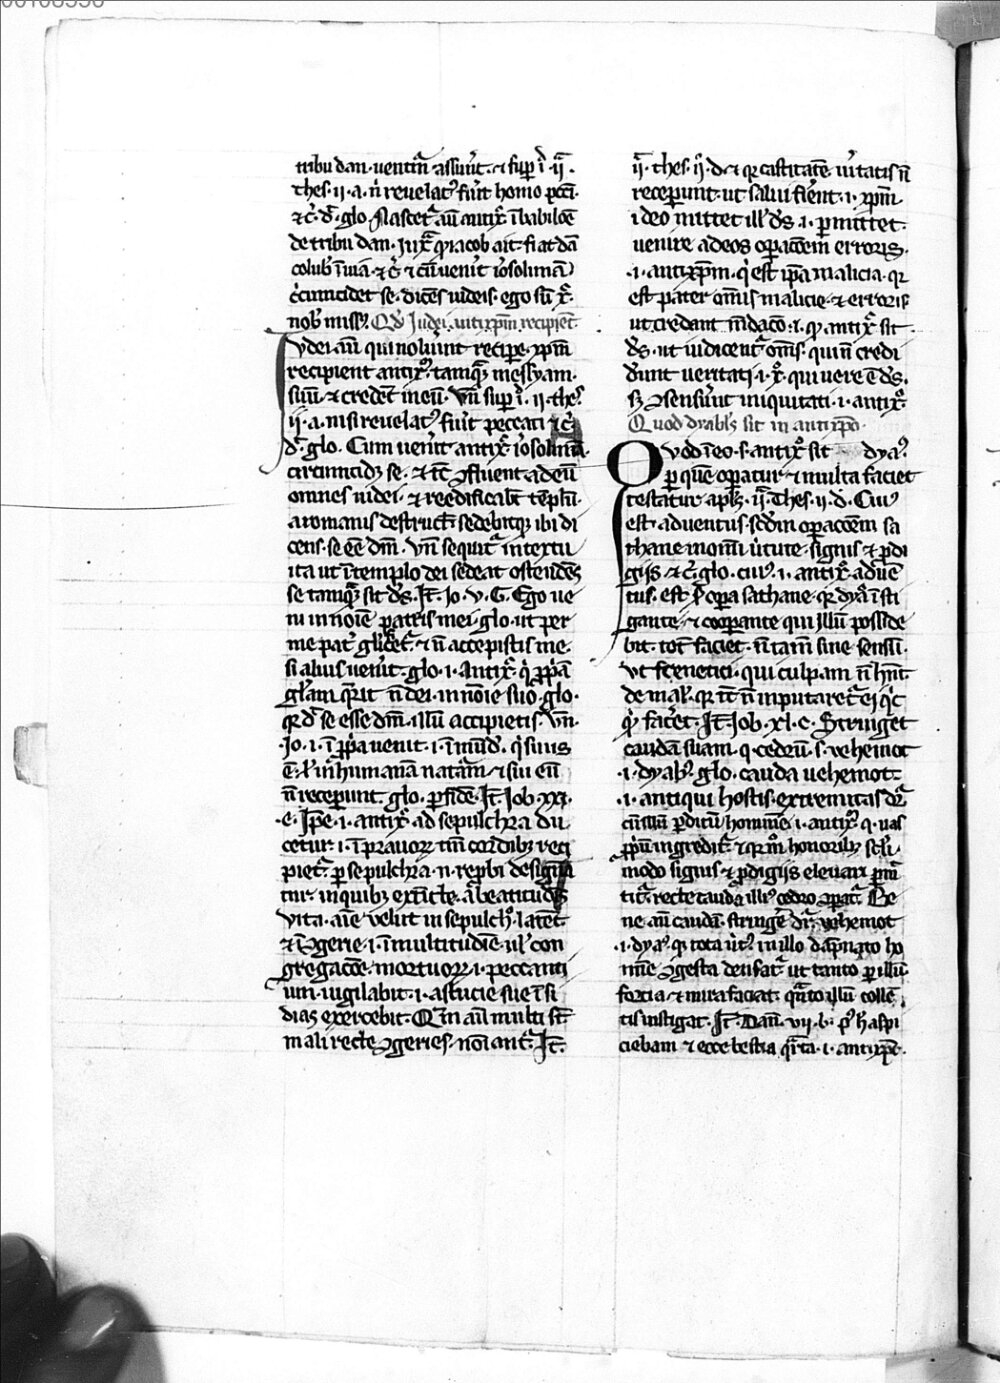 tribu dan. uentur̄ assūt. ⁊ sup̄ i. ij.
thes. ii. a. n̄ reuelatꝰ fūit homo pccī.
⁊c̄. d̄. glo. Nascet᷑ aū antix᷒ ī babiloē
de tribu dan. Jux̄ qͥ iacob ait. fiat dā
colub̄ ī uia. ⁊c̄. ⁊ cū uenīt iōsolimā
cͥcumcidet se. dicēs iudeis. ego sū x᷒.
nob̄ missꝰ. Qd̄ Judei antixp̄m recipiēt.
vdei aū qui noluūnt recipe xp̄m
recipient antix᷒. tamqᷓ messyam.
suū. ⁊ credēt in eū. Vn̄ sup̄ i. ii. thes᷒
ii. a. nisi reuelatꝰ fūit peccati ⁊c̄.
d̄. glo. Cum uenīt antix᷒ iōsolimā
circumcidꝫ se. ⁊ tc̄ ꝯfluent ad eū
omnes iudei. ⁊ reedificabt̄ tēplū.
a romanis destructū. sedebitqꝫ ibi di
cens. se eē dm̄. Vn̄ sequit᷑ in textu
ita ut ī templo dei sedeat ostendēs
se tamqᷓ sit ds̄. It̄. Jo. v. G. Ego ue
ni in noīe patris mei. glo. ut per
me pat᷑ glīficet᷑. ⁊ n̄ accepistis me.
si alius uenīt. glo. i. Antix᷒. qͥ ꝓp̄ā
glā̄m q̄rit n̄ dei. in noīe suo. glo.
qꝛ d̄ se esse dm̄. illū accipietis. Vn̄.
Jo. i. ī ꝓp̄a uenit. i. ī mūd̄. qͥ suus
ē. ł in humanā natam᷑ ⁊ sui eū
n̄ receperunt. glo. ꝑfide. It̄. Job. xxi.
e. Ip̄e. i. antix᷒ ad sepulchra du
cetur. i. ī prauoꝝ tm̄ cordibꝫ reci
piet᷑. ꝑ sepulchra. n. repbi designā
tur. in quibꝫ extīcte. a beatitudīs
vita. aīe velut in sepulchꝰ. latēt.
⁊ ī ꝯgerie. i. ī multitudīe. ul̄ con
gregacōe. mortuoꝝ. i. peccanti
um. iugilabit. i. astucie sue īsi
dias exercebit. Qm̄ aū multi st̄
mali recte ꝯgeries. noīant᷑. It̄.
ij. thes. ij. d. et qꝛ castitatē ūitatis n̄
receperunt. ut salui fiēnt. i. xp̄m
ideo mittet ill᷒ ds̄. i. permittet.
uenire ad eos opacōem erroris.
i. antixp̄m. qͥ est ip̄a malicia. qꝛ
est pater om̄is malicie. ⁊ erroris
ut credant mēdaco. i. qͥ antix᷒ sit
ds̄. ut iudicent᷑ om̄s. qui n̄ credi
dunt ueritati. i. x᷒. qui uere ē ds̄.
sꝫ ꝯsensūnt iniquitati. i. antix᷒.
Quod dyablꝰ sit in antixp̄o.
Qvod ī eo. s. antix᷒ sit dyaꝰ.
ꝑ quē operatur ⁊ multa faciet
testatur aplꝰ. ij. Thes. ij. d. Cuiꝰ
est aduentus. scd̄m opacōem sa
thane in om̄i ūtute. signis ⁊ pdi
giis. ⁊c̄. glo. cuiꝰ. i. antix᷒. aduē
tus. est. s. opa sathane. qꝛ dyā īsti
gante. ⁊ cooperante qui illū posside
bit. tot᷒ faciet. n̄ tam̄ sine sensū.
Vt frenetici. qui culpam n̄ hn̄t.
de mal᷒. qꝛ tc̄ n̄ imputaret᷑ ei qͥc
qͥ facēt. It̄. Job. xl. c. Stringet
caudā suam. q. cedrū. s. vehemot
i. dyabꝰ. glo. cauda uehemot.
i. antiqui hostis. extremitas dr̄
cū illū perditū hominē. i. antix᷒. q. uas
ꝓpͥū ingredit᷑. ⁊ qͥ m̄ honoribꝫ scl̄i.
modo signis ⁊ pdigiis eleuari permi
tit᷑. recte cauda illiꝰ cedro ꝯpat᷑. Be
ne aū caudā. stringē dr̄. vehemot
i. dyaꝰ. qꝛ tota ūtꝰ. in illo dāpnato ho
mīe ꝯgesta densat᷑. ut tanto ꝑ illū
fortia ⁊ mira faciat. qᷓnto illū colle
tis instigat. It̄. Dan̄. vii. b. pꝰ h̄ aspi
ciebam. ⁊ ecce bestia qͬta. i. antixp̄c.